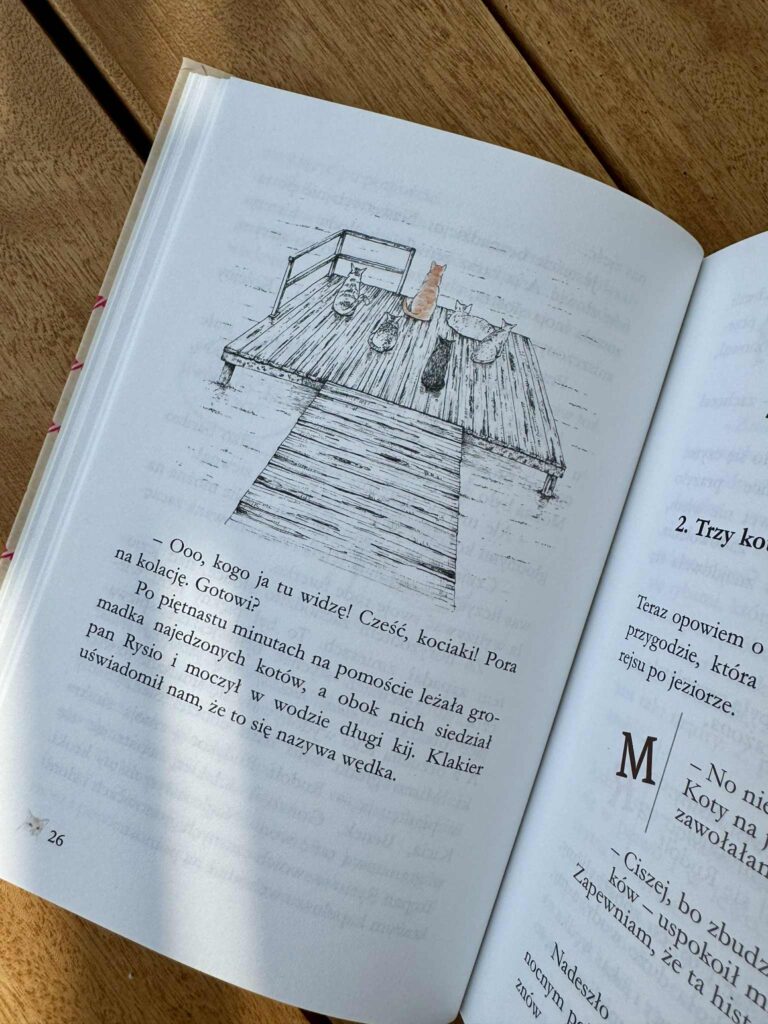 – Ooo, kogo ja tu widzę! Cześć, kociaki! Pora
na kolację. Gotowi?
Po piętnastu minutach na pomoście leżała gro-
madka najedzonych kotów, a obok nich siedział
pan Rysio i moczył w wodzie długi kij. Klakier
uświadomił nam, że to się nazywa wędka.
26
2. Trzy
Teraz opowiem o
przygodzie, która
rejsu po jeziorze.
M
– No nie
Koty na
zawołałam
– Ciszej, bo zbudz
ków – uspokoił
Zapewniam, że ta
Nadeszło
nocnym
znów